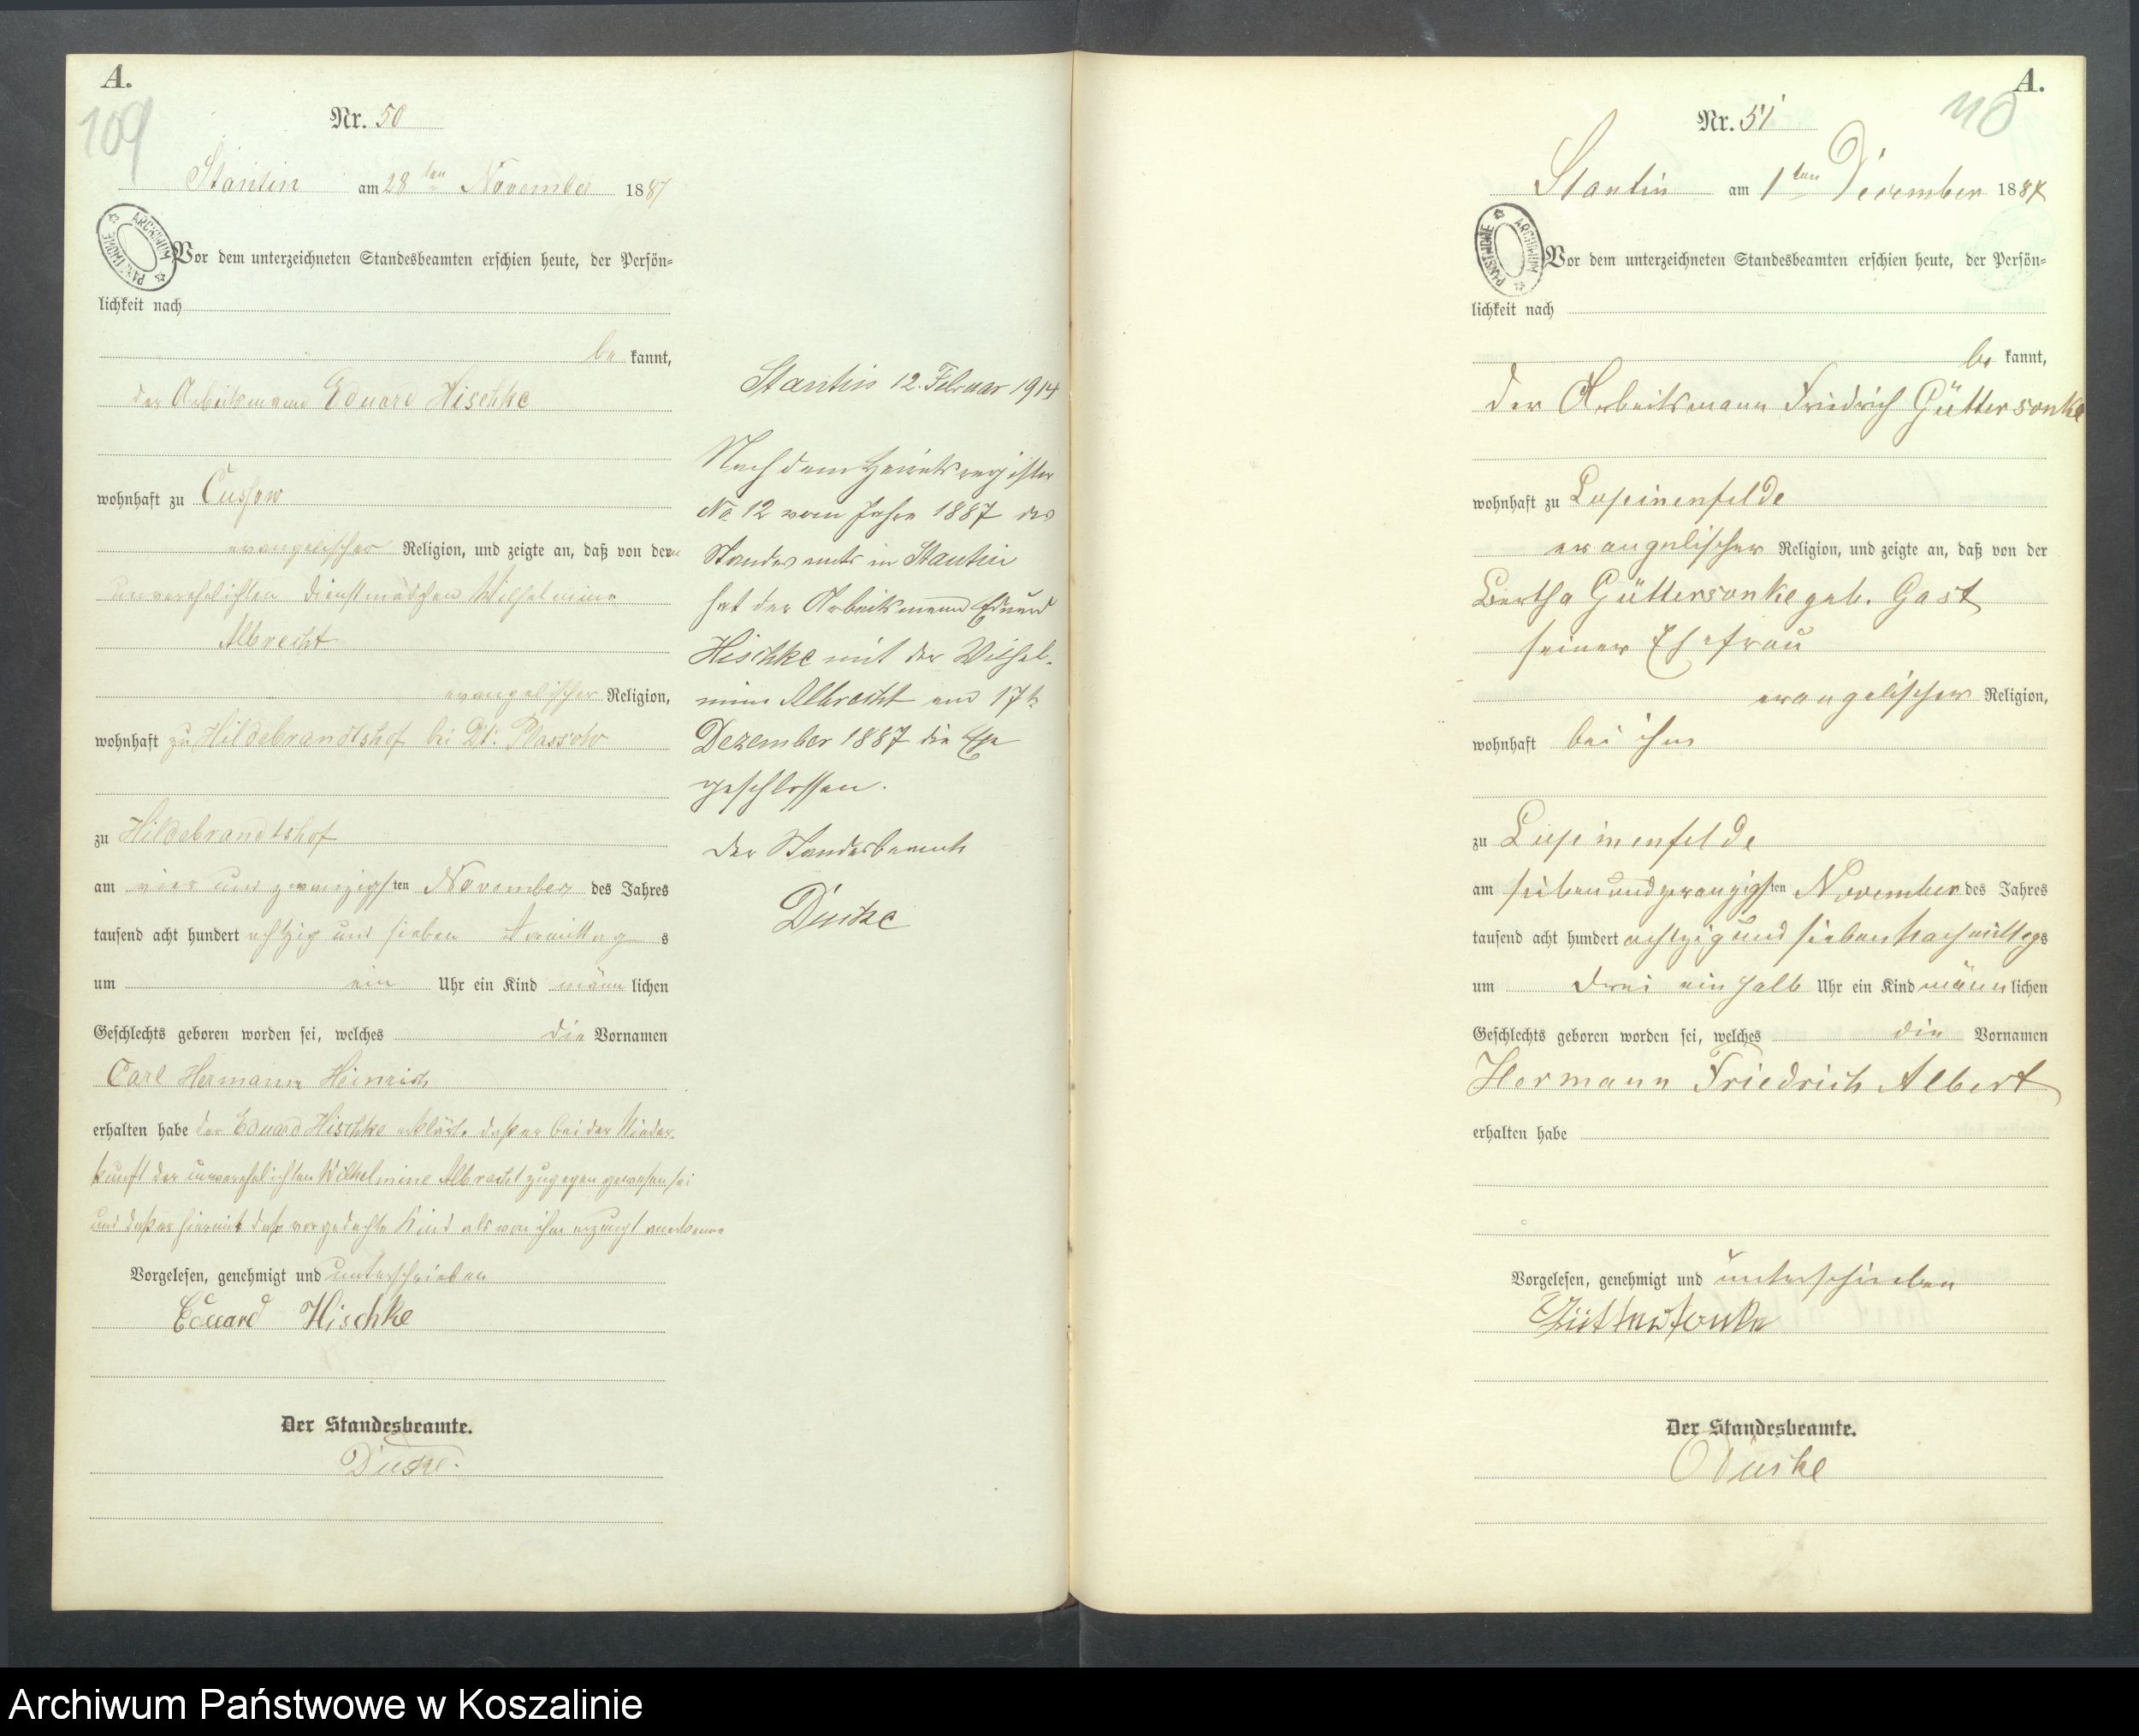 A.
109
Nr. 50
Stantin am 28 ten November 1887
ARCHIWUM PAŃSTWOWE
Vor dem unterzeichneten Standesbeamten erschien heute, der Persön=
lichkeit nach
be kannt,
der Arbeitsmann Eduard Hischke
wohnhaft zu Cussow
evangelischer Religion, und zeigte an, daß von der
unverehelichten Dienstmädchen Wilhelmine
Albrecht
evangelischer Religion,
wohnhaft zu Hildebrandtshof bei Dt. Plassow
zu Hildebrandtshof
am vier und zwanzigsten November des Jahres
tausend acht hundert achtzig und sieben Vormittag s
um ein Uhr ein Kind männ lichen
Geschlechts geboren worden sei, welches die Vornamen
Carl Hermann Heinrich
erhalten habe der Eduard Hischke erklärte daß er bei der Nieder-
kunft der unverehelichten Wilhelmine Albrecht zugegen gewesen sei
und daß er hiermit daß vorgedachte Kind als von ihm erzeugt anerkenne
Vorgelesen, genehmigt und unterschrieben
Eduard Hischke
Der Standesbeamte.
Duske.
Stantin 12. Februar 1914
Nach dem Heiratsregister
No. 12 vom Jahre 1887 des
Standesamts in Stantin
hat der Arbeitsmann Eduard
Hischke mit der Wilhel-
mine Albrecht am 17t
Dezember 1887 die Ehe
geschlossen.
Der Standesbeamte
Duske
A.
110
Nr. 51
Stantin am 1 ten Dezember 1887
PAŃSTWOWE ARCHIWUM
Vor dem unterzeichneten Standesbeamten erschien heute, der Persön=
lichkeit nach
be kannt,
der Arbeitsmann Friedrich Güttersonke
wohnhaft zu Lupinenfelde
evangelischer Religion, und zeigte an, daß von der
Bertha Güttersonke geb. Gast
seiner Ehefrau
evangelischer Religion,
wohnhaft bei ihm
zu Lupinenfelde
am siebenundzwanzigsten November des Jahres
tausend acht hundert achtzig und sieben Nachmittags
um drei ein halb Uhr ein Kind männlichen
Geschlechts geboren worden sei, welches die Vornamen
Hermann Friedrich Albert
erhalten habe
Vorgelesen, genehmigt und unterschrieben
Güttersonke
Der Standesbeamte.
Duske
Archiwum Państwowe w Koszalinie